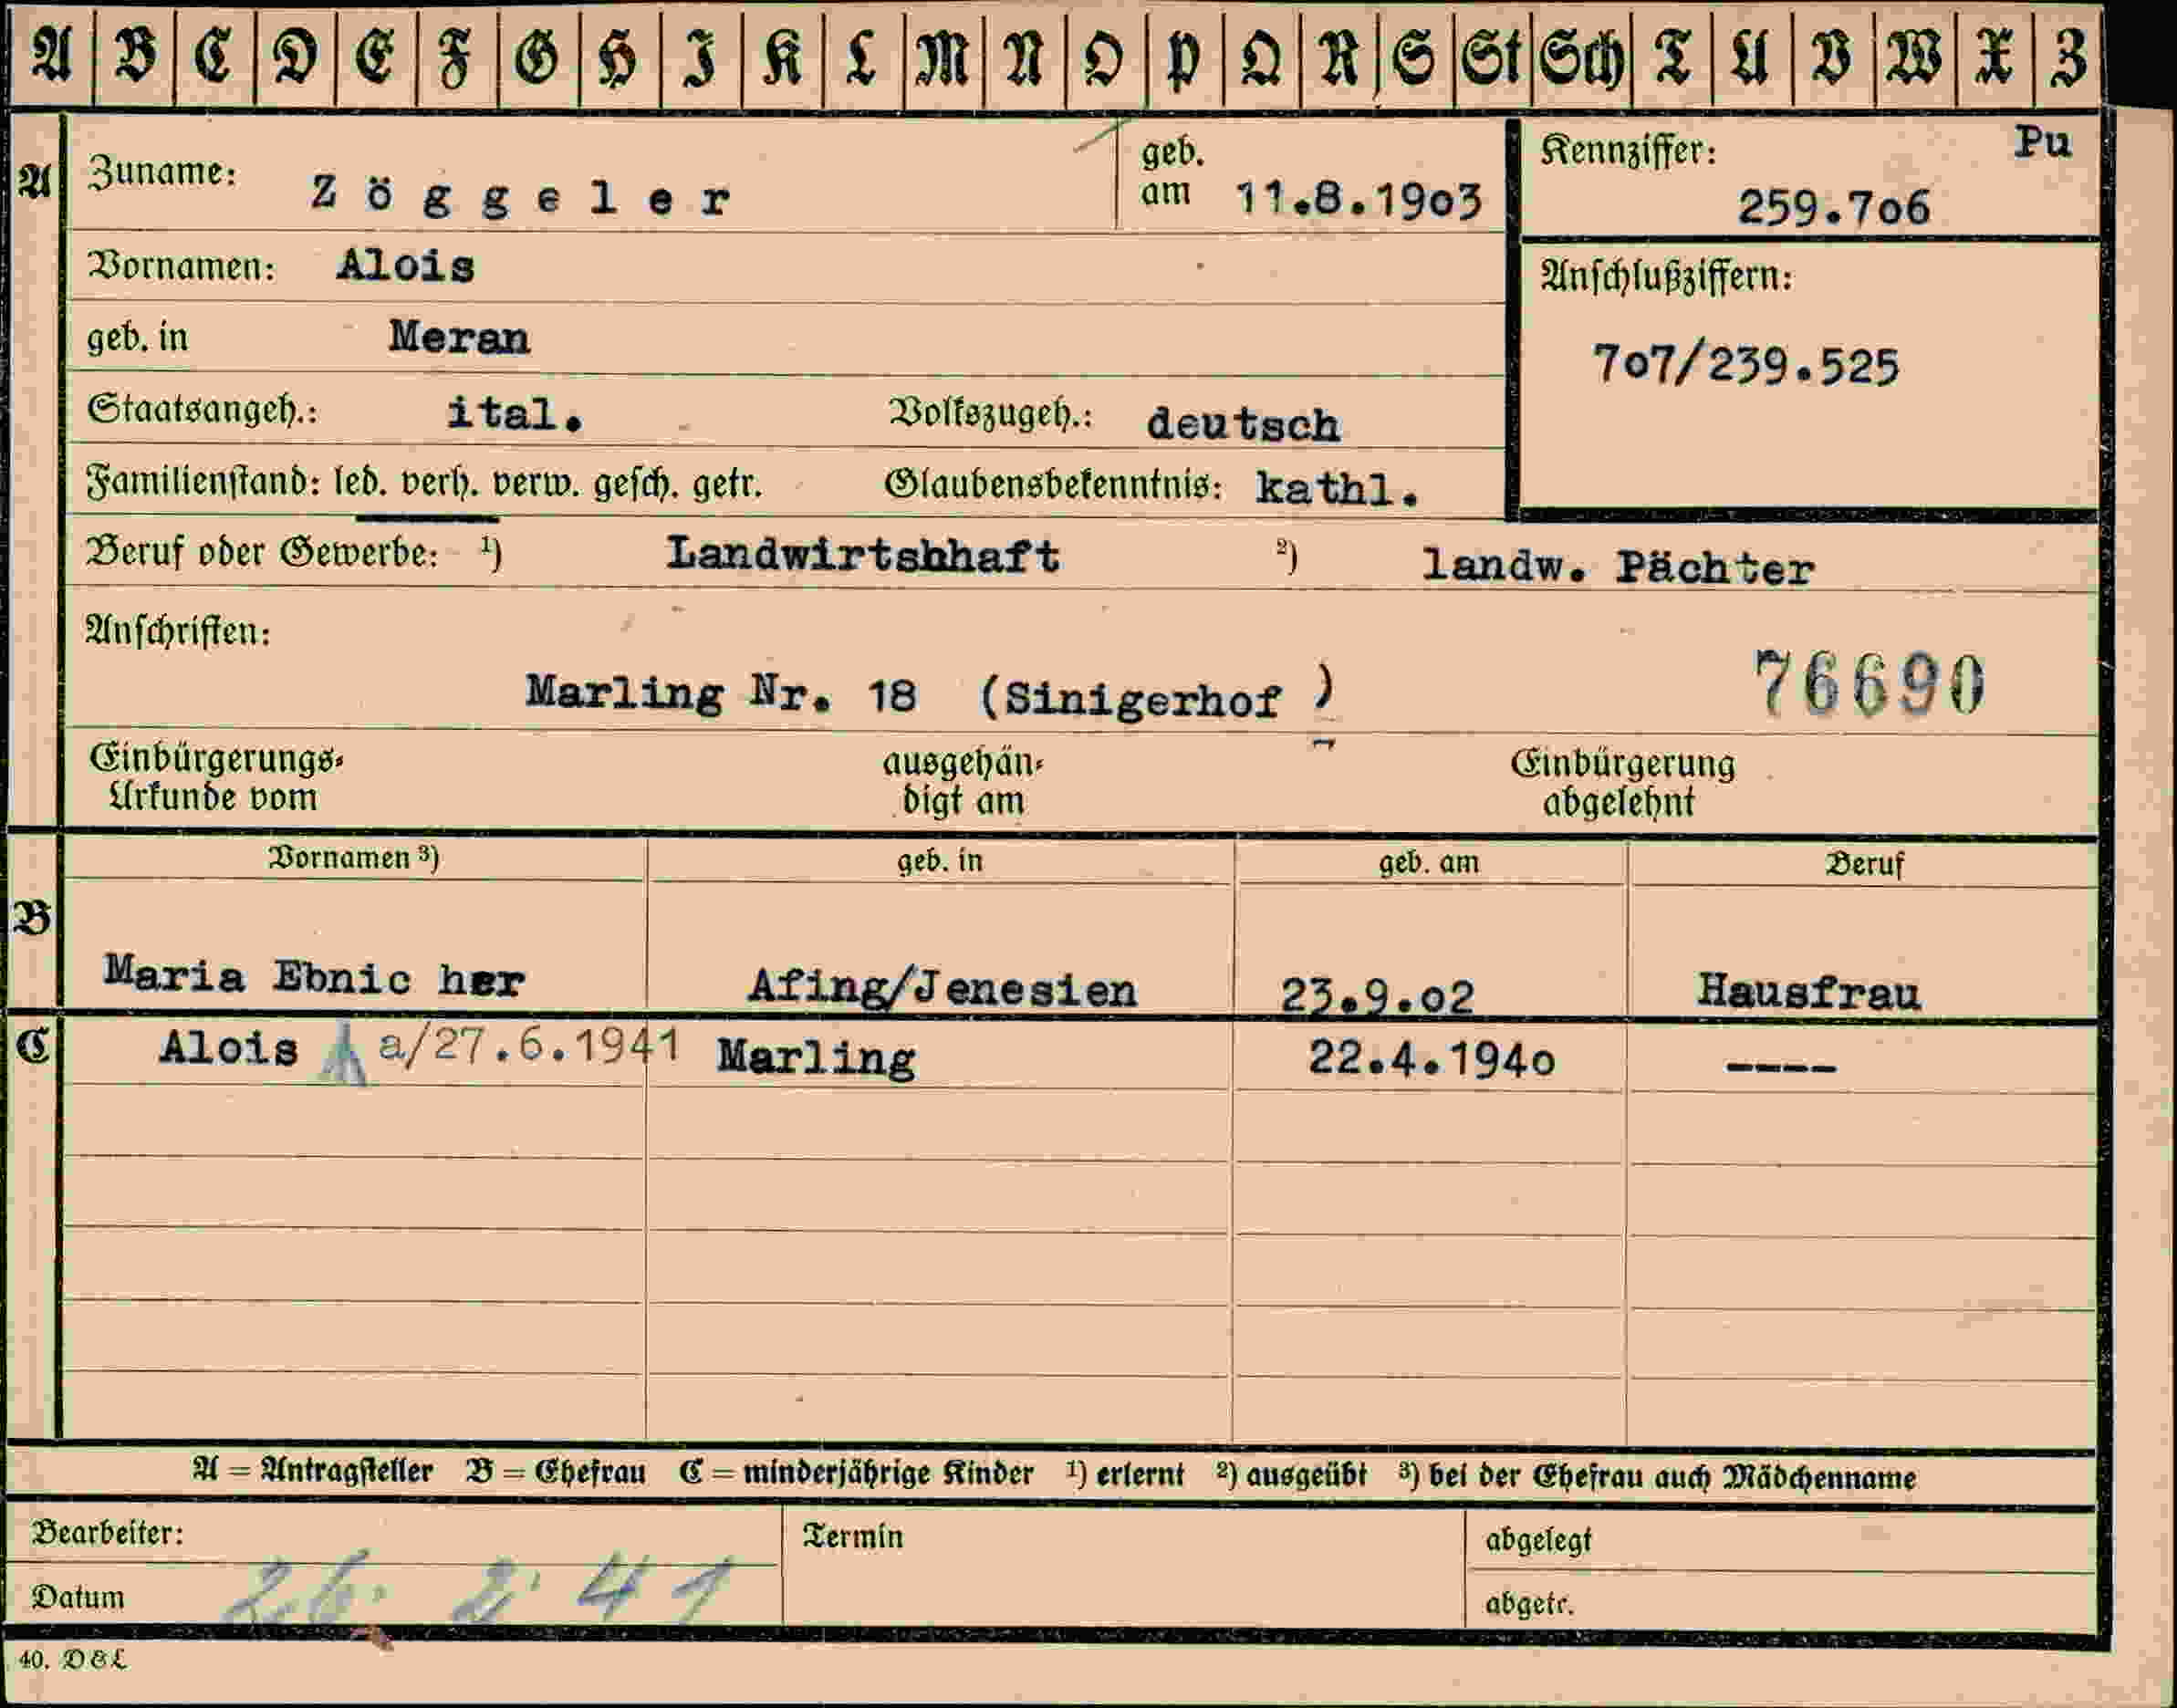 A B C D E F G H I K L M N O P Q R S St Sch T U V W X Z
A Zuname: Zöggeler geb. am 11.8.19o3 Kennziffer: Pu
259.7o6
Vornamen: Alois
Anschlußziffern:
geb. in Meran
7o7/239.525
Staatsangeh.: ital. Volkszugeh.: deutsch
Familienstand: led. verh. verw. gesch. getr. Glaubensbekenntnis: kathl.
Beruf oder Gewerbe: 1) Landwirtshhaft 2) landw. Pächter
Anschriften:
Marling Nr. 18 (Sinigerhof ) 76690
Einbürgerungs- ausgehän- Einbürgerung
Urkunde vom digt am abgelehnt
Vornamen 3) geb. in geb. am Beruf
B
Maria Ebnic her Afing/Jenesien 23.9.o2 Hausfrau
C Alois a/27.6.1941 Marling 22.4.194o ----
A = Antragsteller B = Ehefrau C = minderjährige Kinder 1) erlernt 2) ausgeübt 3) bei der Ehefrau auch Mädchenname
Bearbeiter: Termin abgelegt
Datum 26. 2. 41 abgetr.
40. D & L